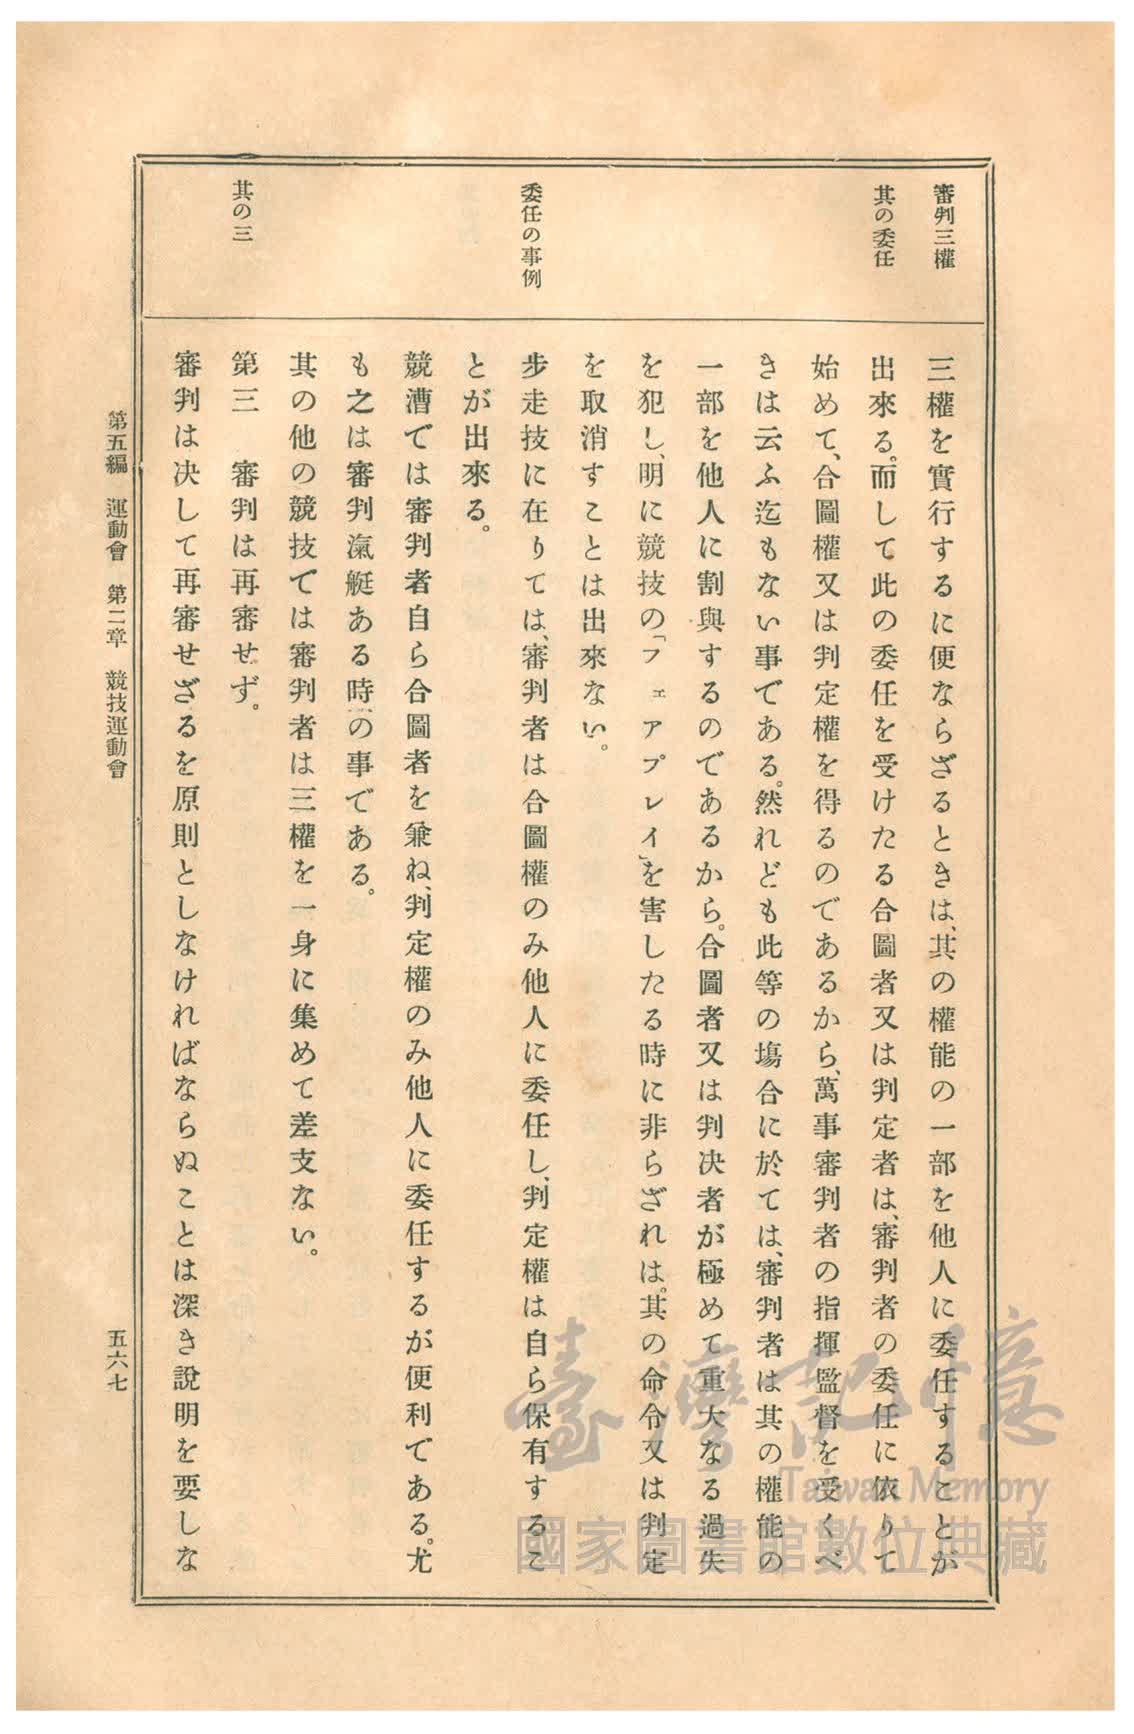 審判三權
其の委任
委任の事例
其の三
三權を實行するに便ならざるときは、其の權能の一部を他人に委任することが
出來る。而して此の委任を受けたる合圖者又は判定者は、審判者の委任に依りて
始めて、合圖權又は判定權を得るのであるから、萬事審判者の指揮監督を受くべ
きは云ふ迄もない事である。然れども此等の塲合に於ては、審判者は其の權能の
一部を他人に割與するのであるから。合圖者又は判決者が極めて重大なる過失
を犯し、明に競技の「フェアプレイ」を害したる時に非らざれは。其の命令又は判定
を取消すことは出來ない。
步走技に在りては、審判者は合圖權のみ他人に委任し、判定權は自ら保有するこ
とが出來る。
競漕では審判者自ら合圖者を兼ね、判定權のみ他人に委任するが便利である。尤
も之は審判滊艇ある時の事である。
其の他の競技では審判者は三權を一身に集めて差支ない。
第三　審判は再審せず。
審判は決して再審せざるを原則としなければならぬことは深き說明を要しな
第五編　運動會　第二章　競技運動會
五六七
臺灣記憶
Taiwan Memory
國家圖書館數位典藏